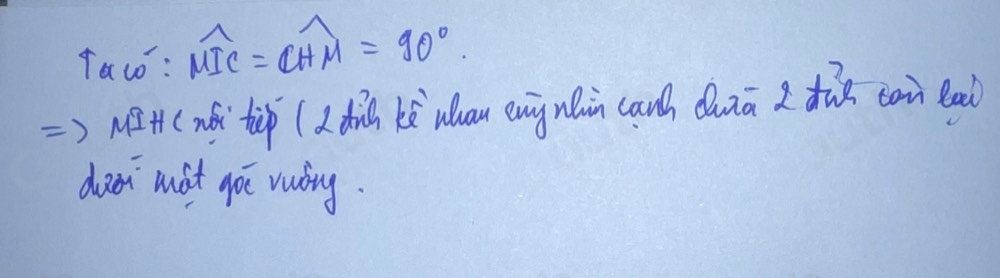 Ta có: $\widehat{MIC} = \widehat{CHM} = 90°$.
=> MIHC nội tiếp (2 đỉnh kề nhau cùng nhìn cạnh chứa 2 đỉnh còn lại
dưới một góc vuông.